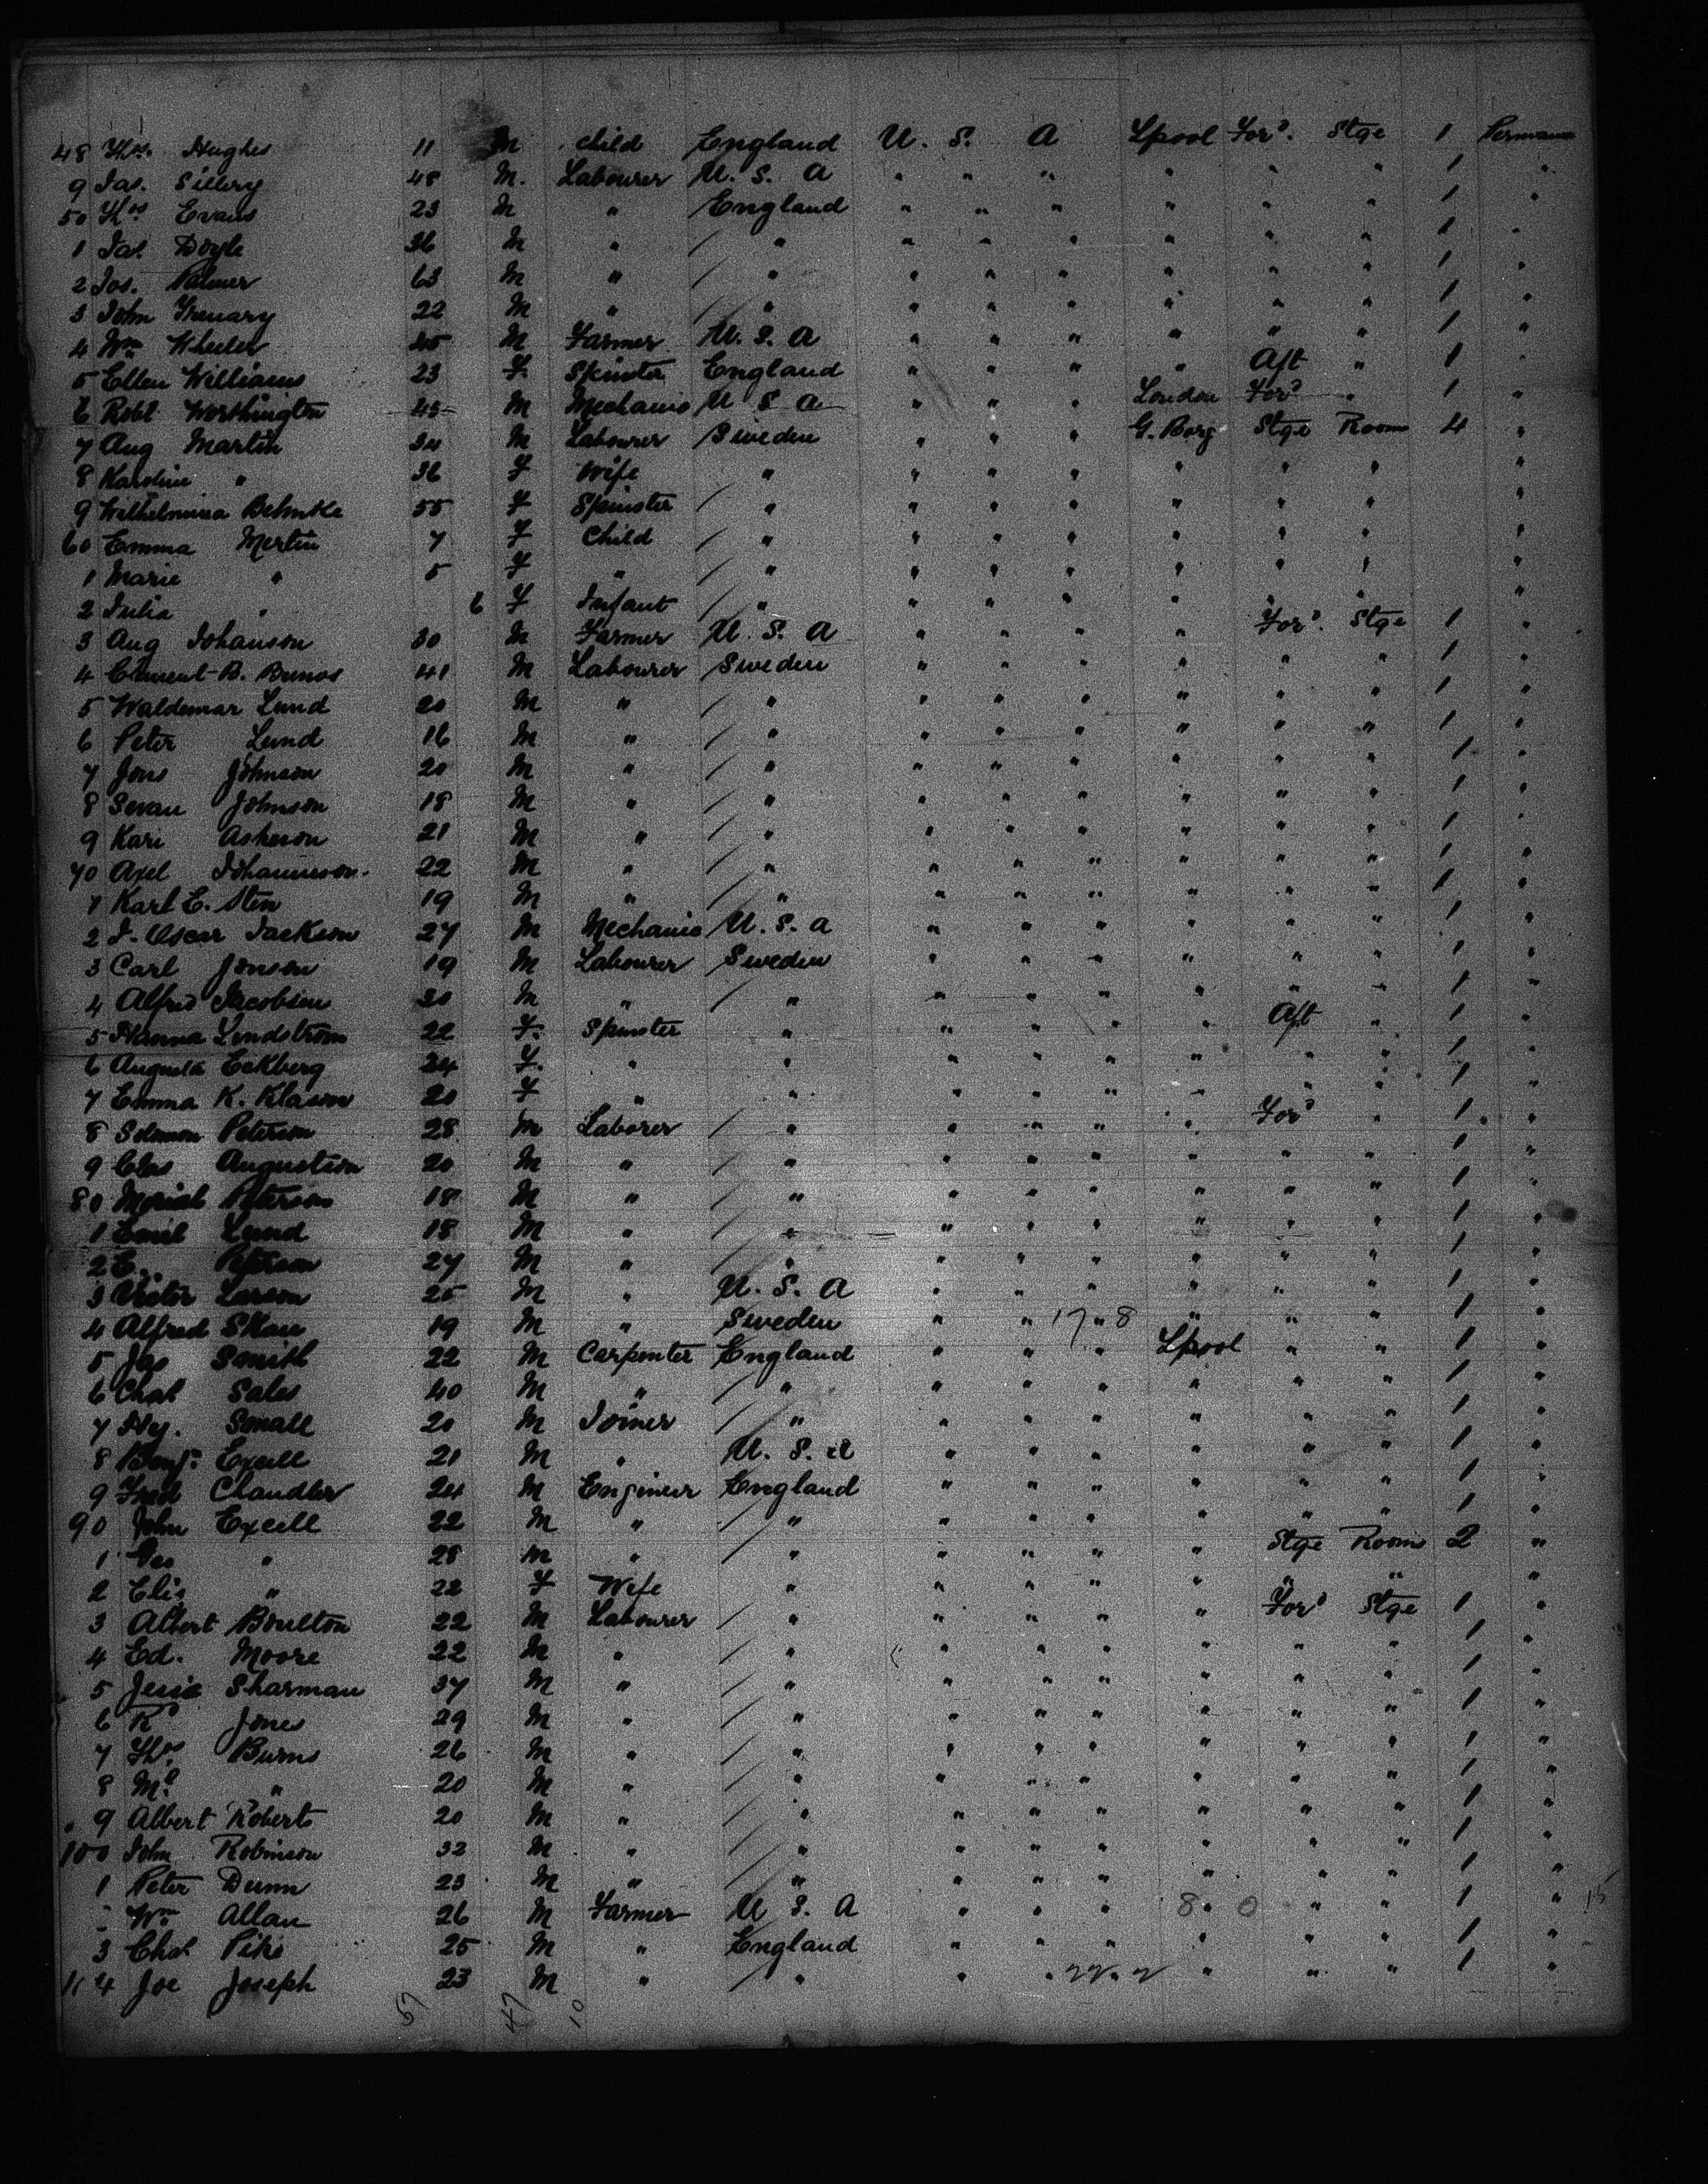 48 Thos. Hughes 11 M child England U. S. A Lpool For'd. Stge 1
9 Jas. Sillery 48 M. Labourer U. S. A " " " " " " 1 "
50 Thos Evans 23 M " England " " " " " " 1 "
1 Jas. Doyle 36 M " " " " " " " " 1 "
2 Jos. Palmer 63 M " " " " " " " " 1 "
3 John 22 M " " " " " " " " 1 "
4 Wm Wheeler 45 M Farmer U. S. A " " " " " " 1 "
5 Ellen Williams 23 F Spinster England " " " " Aft " 1 "
6 Robt Worthington 45 M Mechanic U S A " " " London For'd " 1 "
7 Aug Martin 34 M Labourer Sweden " " " G. Borg Stge Room 4 "
8 Karoline " 36 F Wife " " " " " " " "
9 Wilhelmina 55 F Spinster " " " " " " " "
60 Emma Mertin 7 F Child " " " " " " " "
1 Marie " 5 F " " " " " " " " "
2 Julia " 6 F Infant " " " " " " "
3 Aug Johanson 30 M Farmer U. S. A " " " " For'd. Stge 1 "
4 Clement B. 41 M Labourer Sweden " " " " " " 1 "
5 Waldemar Lund 20 M " " " " " " " " 1 "
6 Peter Lund 16 M " " " " " " " " 1 "
7 Jons Johnson 20 M " " " " " " " " 1 "
8 Johnson 18 M " " " " " " " " 1 "
9 Kari 21 M " " " " " " " " 1 "
70 Axel 22 M " " " " " " " " 1 "
1 Karl E. Sten 19 M " " " " " " " " 1 "
2 J. Oscar Jackson 27 M Mechanic U. S. A " " " " " " 1 "
3 Carl Jonson 19 M Labourer Sweden " " " " " " 1 "
4 Alfred 20 M " " " " " " " " 1 "
5 Hanna Lindstrom 22 F. Spinster " " " " " Aft " 1 "
6 Augusta Eckberg 24 F. " " " " " " " " 1 "
7 Emma K. Klason 20 F " " " " " " " " 1 "
8 Solomon Peterson 28 M Laborer " " " " " For'd " 1 "
9 Clas 20 M " " " " " " " " 1 "
80 Peterson 18 M " " " " " " " " 1 "
1 Emil Lund 18 M " " " " " " " " 1 "
2 E. Peterson 27 M " " " " " " " " 1 "
3 Victor Larson 25 M " U. S. A " " " " " " 1 "
4 Alfred Skau 19 M " Sweden " " 17 " 8 " " " 1 "
5 Jas Smith 22 M Carpenter England " " " Lpool " " 1 "
6 Chas Sales 40 M " " " " " " " " 1 "
7 Hy. Small 20 M Joiner " " " " " " " 1 "
8 Benj. Excell 21 M " U. S. A " " " " " " 1 "
9 Fred Chandler 24 M Engineer England " " " " " " 1 "
90 John Excell 22 M " " " " " " " " 1 "
1 Geo " 28 M " " " " " " Stge Room 2 "
2 Eliz " 22 F Wife " " " " " " "
3 Albert Boulton 22 M Labourer " " " " " For'd Stge 1 "
4 Ed. Moore 22 M " " " " " " " " 1 "
5 Sharman 37 M " " " " " " " " 1 "
6 Rd Jones 29 M " " " " " " " " 1 "
7 Thos Burns 26 M " " " " " " " " 1 "
8 " 20 M " " " " " " " " 1 "
9 Albert Roberts 20 M " " " " " " " " 1 "
100 John Robinson 32 M " " " " " " " " 1 "
1 Peter Dunn 23 M " " " " " " " " 1 "
Wm Allan 26 M Farmer U S. A " " " 8 " 0 " " 1 " 15
3 Chas Pike 25 M " England " " " " " " 1 "
4 Joe Joseph 23 M " " " " " " " 1 "
57 47 10